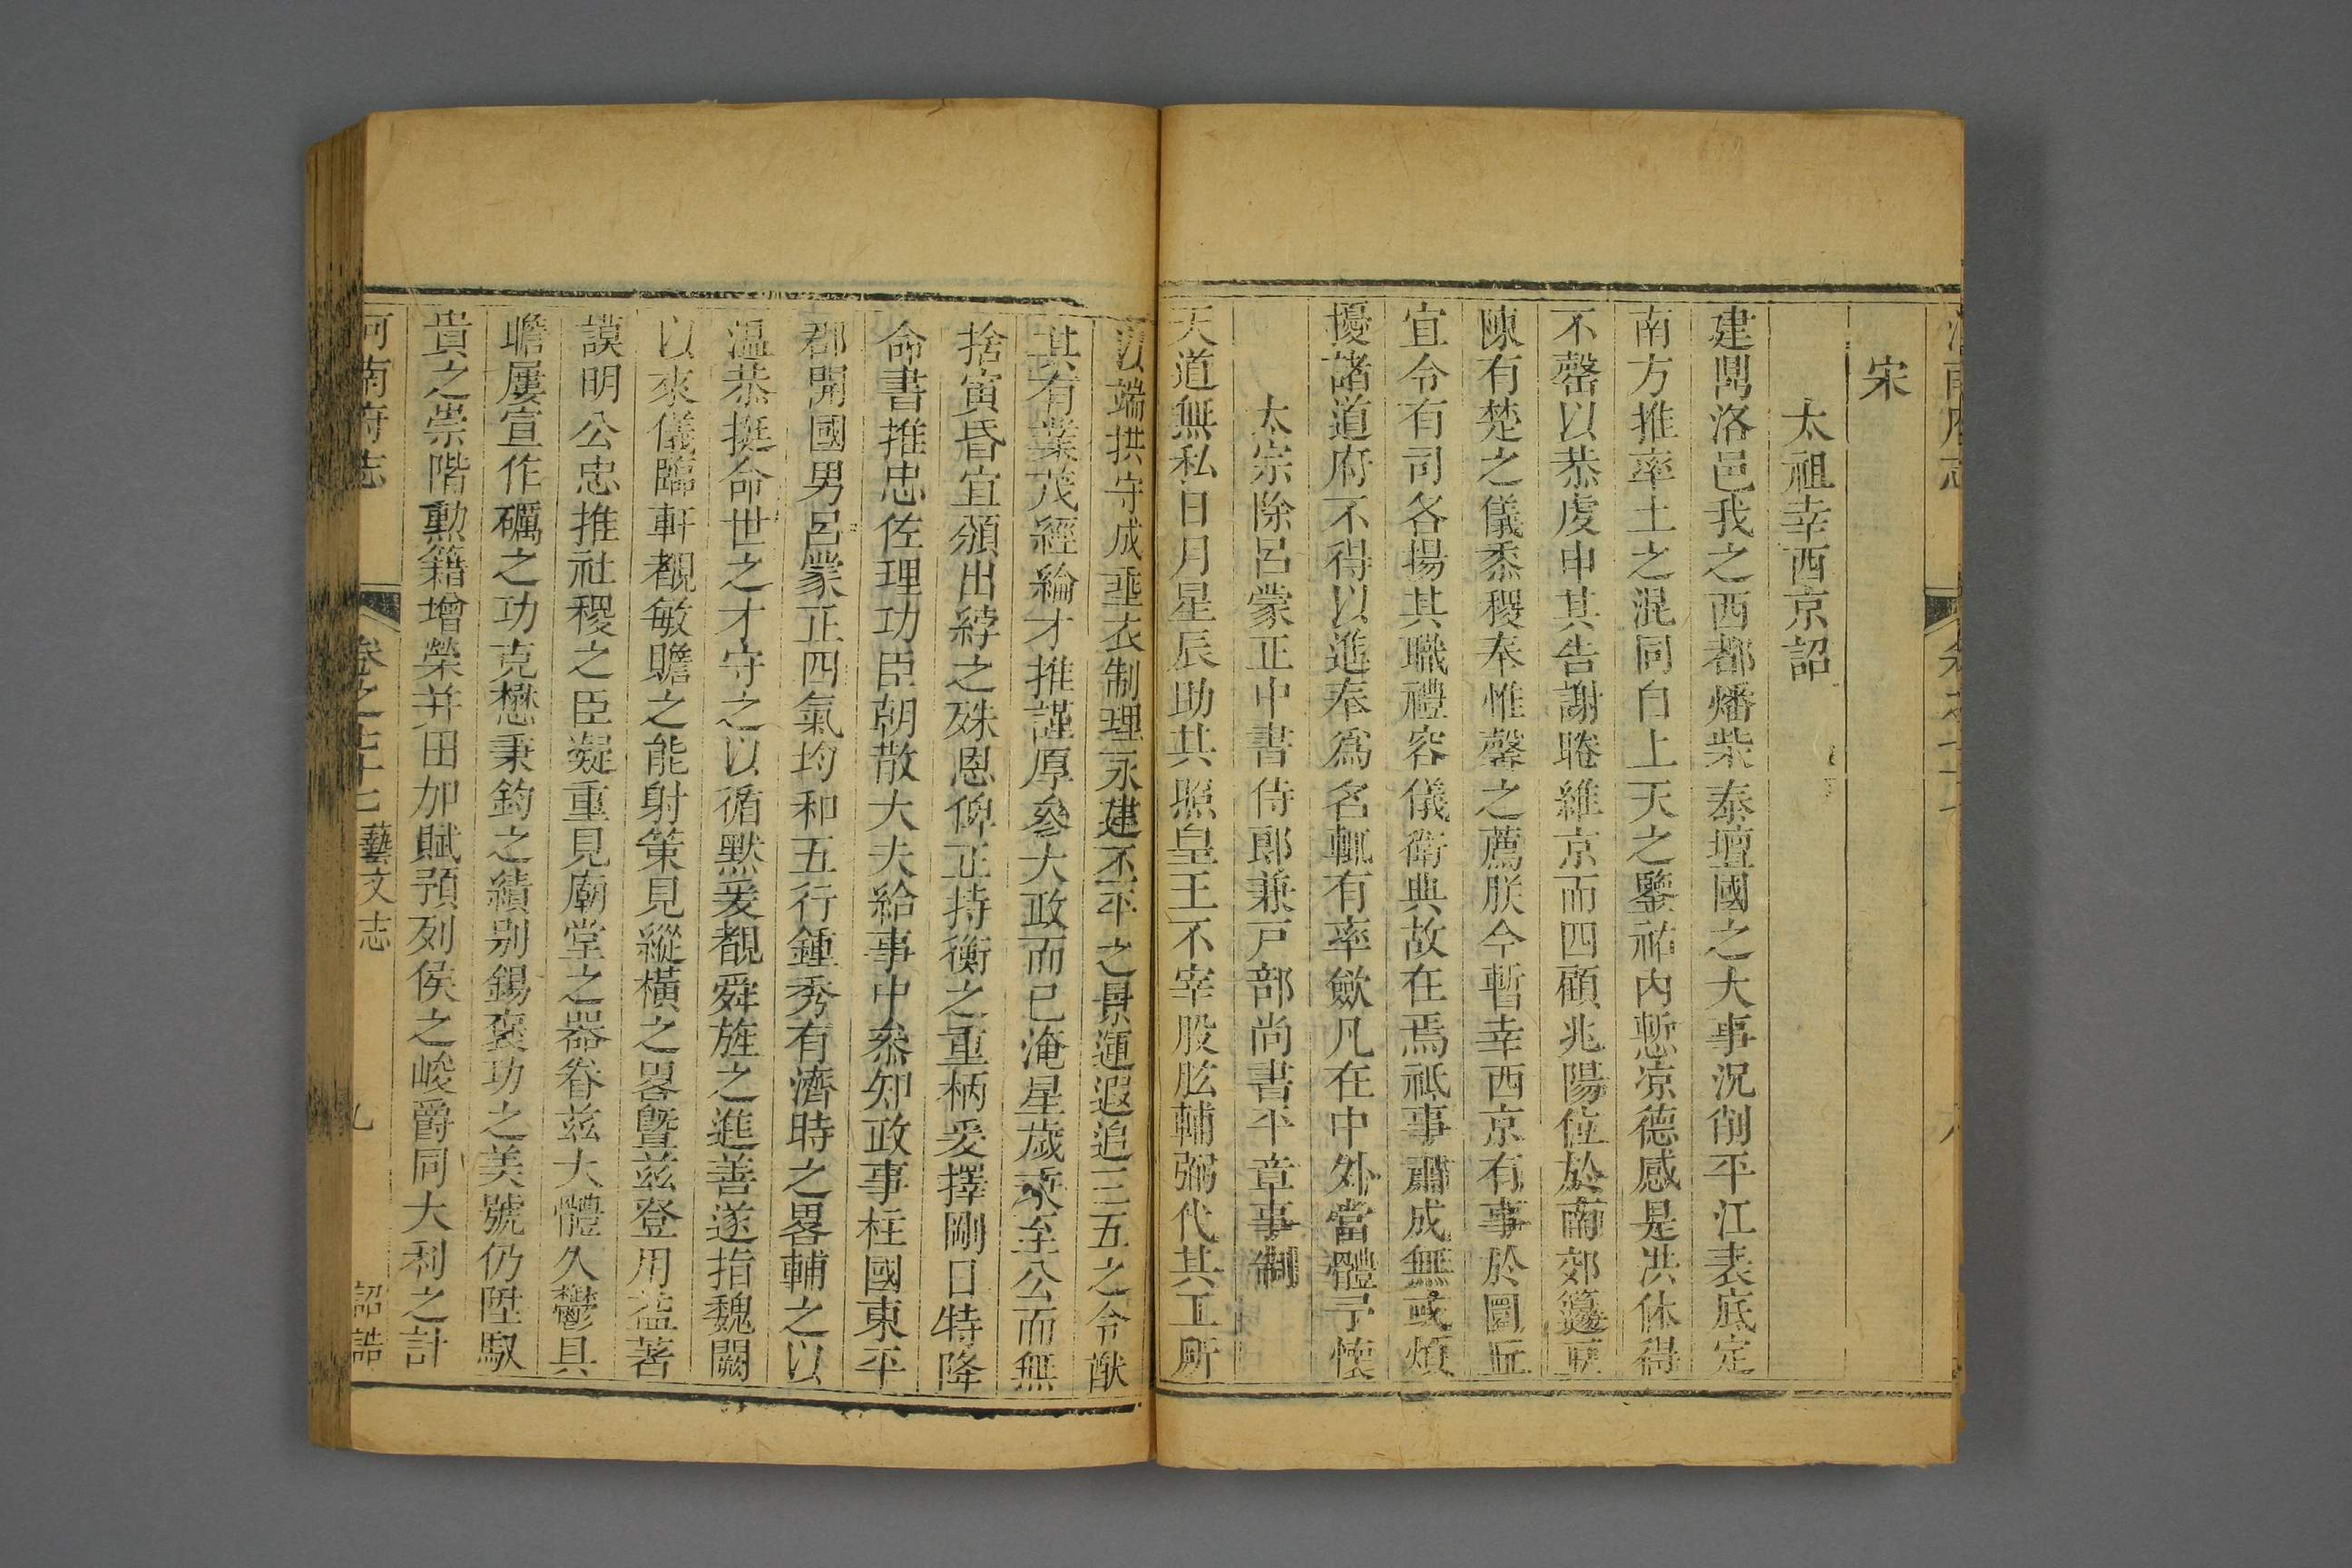 宋
太祖幸西京詔
建鼎洛邑我之西都燔柴泰壇國之大事況削平江表底定
南方推率土之混同自上天之鑒祐內慙凉德感是洪休得
不罄以恭虔申其告謝睠維京而四顧兆陽位於南郊籩豆
陳有楚之儀黍稷奉惟馨之薦朕今暫幸西京有事於圜丘
宜令有司各揚其職禮容儀衛典故在焉祗事肅成無或煩
擾諸道府不得以進奉爲名輒有率歛凡在中外當體予懷
太宗除呂蒙正中書侍郎兼戸部尚書平章事制
天道無私日月星辰助其照皇王不宰股肱輔弼代其工所
以端拱守成垂衣制理永建丕平之景運遐追三五之令猷
其有業茂經綸才推謹厚參大政而已淹星歲秉至公而無
捨寅昏宜頒出綍之殊恩俾正持衡之重柄爰擇剛日特降
命書推忠佐理功臣朝散大夫給事中叅知政事柱國東平
郡開國男呂蒙正四氣均和五行鍾秀有濟時之畧輔之以
温恭挺命世之才守之以循默爰覩舜旌之進善遂指魏闕
以來儀臨軒覩敏贍之能射策見縱橫之畧曁兹登用益著
謨明公忠推社稷之臣凝重見廟堂之器眷兹大體久鬱具
瞻屢宣作礪之功克懋秉鈞之績别錫襃功之美號仍陞馭
貴之崇階勲籍增榮井田加賦預列侯之峻爵同大利之計
河南府志
卷之七十七
藝文志
九
詔誥